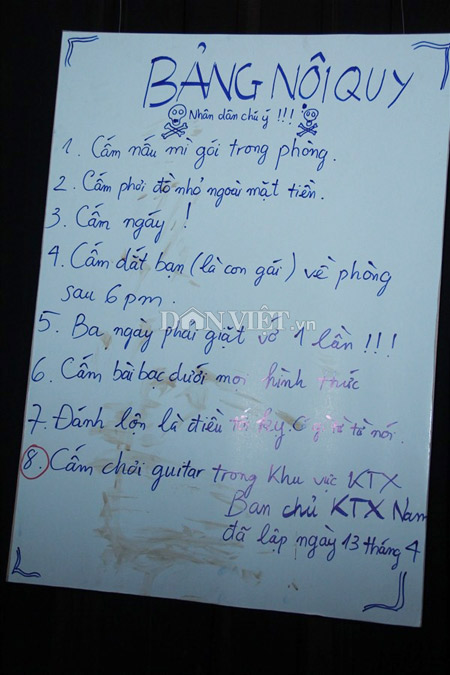 BẢNG NỘI QUY
Nhân dân chú ý !!!
1. Cấm nấu mì gói trong phòng.
2. Cấm phơi đồ nhỏ ngoài mặt tiền.
3. Cấm ngáy !
4. Cấm dắt bạn (là con gái) về phòng
sau 6 pm.
DÂNVIỆT.vn
5. Ba ngày phải giặt vớ 1 lần !!!
6. Cấm bài bạc dưới mọi hình thức
7. Đánh lộn là điều tối kỵ. từ từ nói.
8. Cấm chơi guitar trong khu vực KTX
Ban chủ KTX Nam
đã lập ngày 13 tháng 4